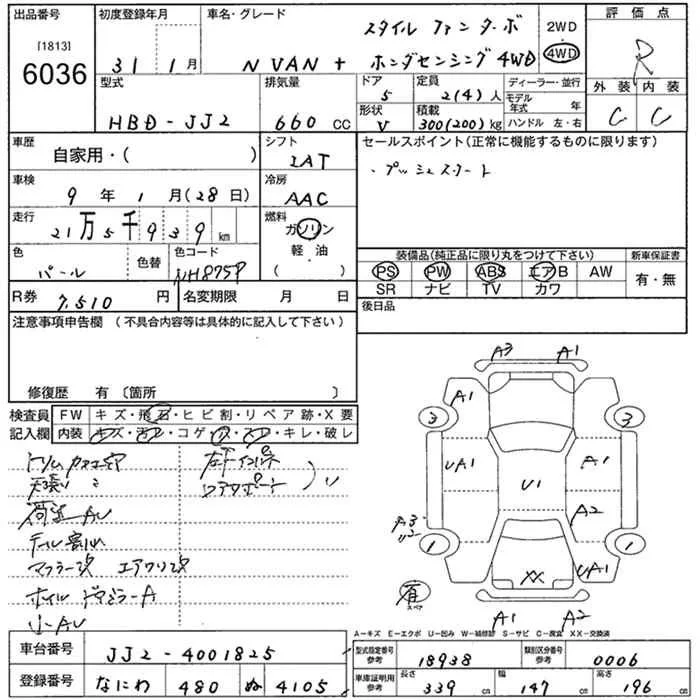 出品番号 初度登録年月 車名・グレード スタイル ファン ターボ 2WD 4WD 評価点
[1813] 6036 31 1月 N VAN + ホンダセンシング 4WD R
外装 内装
C C
型式 排気量 ドア 定員 ディーラー・並行
HBD-JJ2 660 CC 5 2(4)人 モデル年式 年
形状 積載 ハンドル 左・右
V 300(200)kg
車歴 シフト セールスポイント(正常に機能するものに限ります)
自家用・( ) IAT ・プッシュスタート
車検 冷房
9年 1月(28日) AAC
走行 燃料
21万5千939km ガソリン 軽・油 ・( )
色 色替 色コード
パール NH875P
装備品(純正品に限り丸をつけて下さい) 新車保証書
PS PW ABS エアB AW 有・無
SR ナビ TV カワ
R券 7,510円 名変期限 月 日 後日品
注意事項申告欄 (不具合内容等は具体的に記入して下さい)
修復歴 有〔箇所 〕
検査員記入欄 FW キズ・飛石・ヒビ割・リペア跡・X要
内装 キズ・汚レ・コゲ・穴・スレ・キレ・破レ
A3 A1
A1
3 3
UA1 A1
U1
A2
A3
1 1
XX UA1
有 スペア
A1 A2
テール割れ
マフラー改 エアクリ改
ホイル ドアミラーA
小AU
A-キズ E-エクボ U-凹み W-補修跡 S-サビ C-腐食 XX-交換済
車台番号 JJ2-4001825
型式指定番号 参考 18938 類別区分番号 参考 0006
登録番号 なにわ 480 ぬ 4105
車庫証明用 参考 長さ 339cm 幅 147cm 高さ 196cm